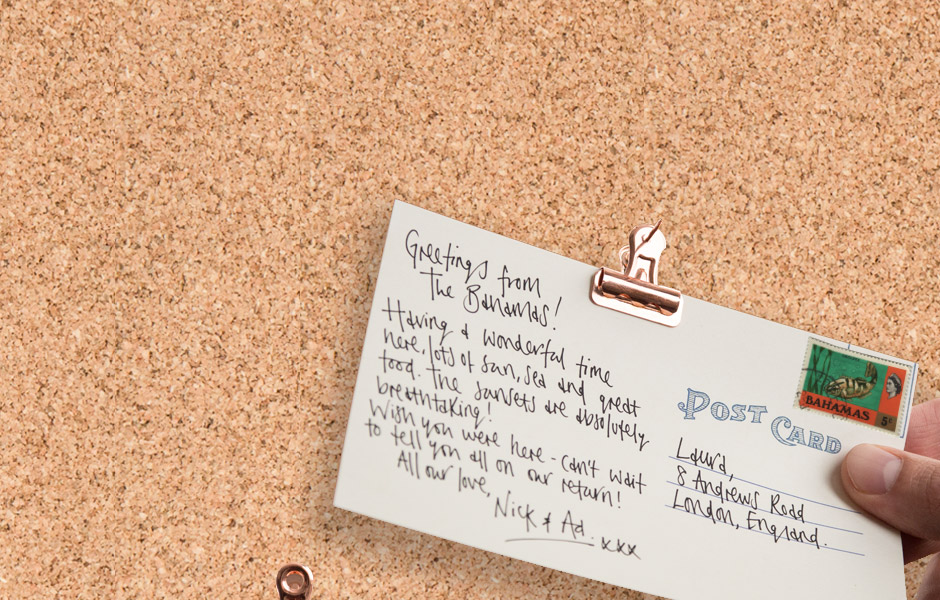 Greetings from
The Bahamas!
Having a wonderful time
here, lots of sun, sea and great
food. The sunsets are absolutely
breathtaking!
Wish you were here - can't wait
to tell you all on our return!
All our love,
Nick & Ad.
xxx
BAHAMAS 5c
POST CARD
Laura,
8 Andrews Road
London, England.